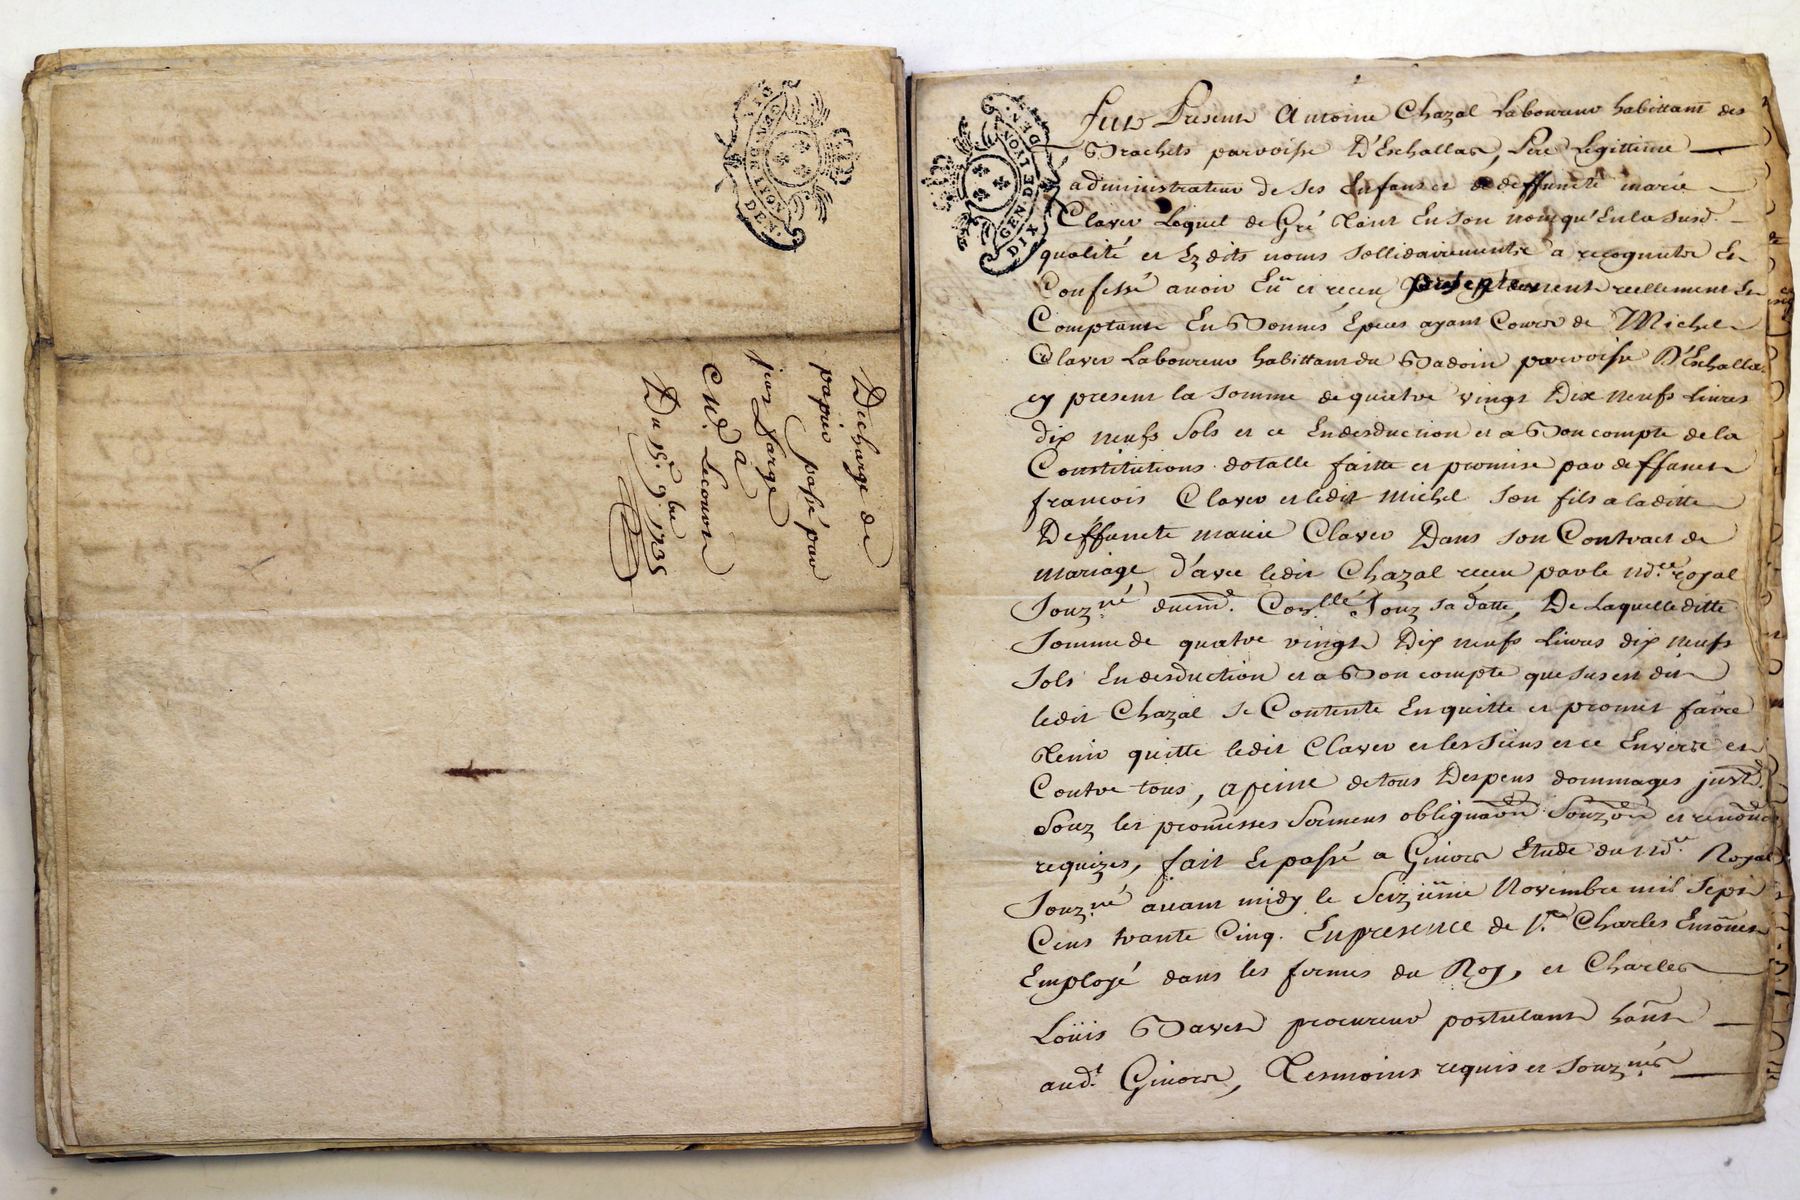 DIX
GEN. DE LYON
DEN.
Decharge de
papier passé par
jean farge
a
Cl.d Lecouvre
Du 15.e 9.bre 1735
GEN. DE LYON
DIX
DEN.
Fut Present Antoine Chazal Laboureur habittant des
Brachets parroisse D'Eschallas, Pere Legittime
administrateur de ses Enfans et de deffuncte marie
Claver Lequel de Gré Tant En son nom qu'En la susd.
qualité et Ezdits noms sollidairement a recognu et
Confessé avoir Eu et receu presentement reellement Et
Comptant En Bonnes Epeces ayant Cours de Michel
Claver Laboureur habittant du Badoin parroisse D'Eschallas
cy present la somme de quatre vingt Dix neufs Livres
dix neufs sols et ce En desduction et a Bon compte de la
Constitutions dotalle faitte et promise par deffunct
francois Claver et ledit Michel son fils a laditte
Deffuncte marie Claver Dans son Contract de
mariage d'avec ledit Chazal receu par le nd.re royal
Souz.né duemt. Con.llé Souz sa datte, De Laquelle ditte
Somme de quatre vingt Dix neufs Livres dix neufs
Sols En desduction et a Bon compte que sus est dit
ledit Chazal se Contente En quitte et promet faire
Tenir quitte ledit Claver et les siens et ce Envers et
Contre tous, a peine de tous Despens dommages
Souz les promesses sermens obligaon et renon
requizes, fait et passé a Givors Etude du nd.re Royal
Souz.né avant midy le Seizieme Novembre mil sept
Cens trante Cinq. En presence de s.r Charles
Employé dans les fermes du Roy, et Charles
Loüis Bavet procureur postulant hant
aud.t Givors, Tesmoins requis et souz.nés